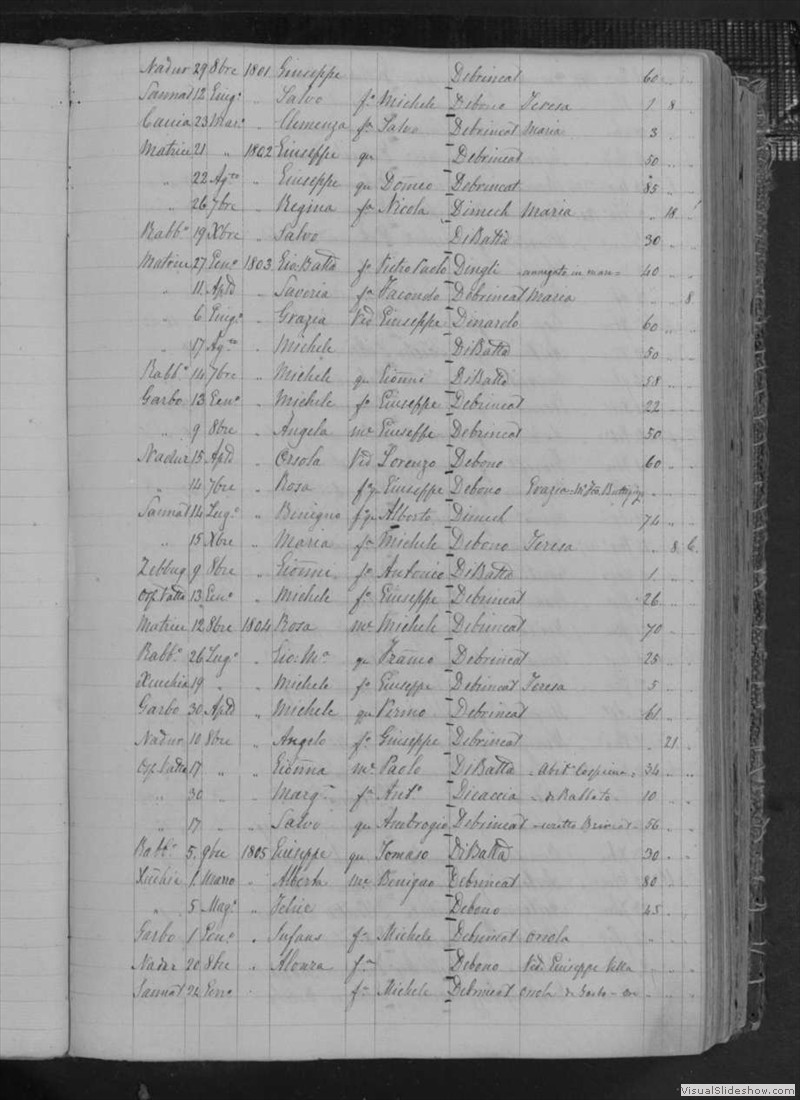 Nadur 29 8bre 1801 Giuseppe Debrincat 60 „ „
Sannat 12 Giug.o „ Salvo f.o Michele Debono Teresa 1 8 „
Caccia 23 Mar.o „ Clemenza f.a Salvo Debrincat Maria 3 „ „
Matrice 21 „ 1802 Giuseppe qu Debrincat 50 „ „
„ 22 Ag.to „ Giuseppe qu Domco Debrincat 85 „ „
„ 26 7bre „ Regina f.a Nicola Dimech Maria „ 18
Rabb.o 19 Xbre „ Salvo DiBattā 30 „ „
Matrice 27 Gen.o 1803 Gio: Battā f.o Pietro Paolo Dingli annegato in mare 40 „ „
„ 11 Aple „ Saveria f.a Facondo Debrincat Maria „ „ 8
„ 6 Giug.o „ Grazia Vid Giuseppe Denardo 60 „ „
„ 17 Ag.to „ Michele DiBattā 50 „ „
Rabb.o 14 7bre „ Michele qu Gionni DiBattā 58 „ „
Garbo 13 Gen.o „ Michele f.o Giuseppe Debrincat 22 „ „
„ 9 8bre „ Angela me Giuseppe Debrincat 50 „ „
Nadur 15 Aple „ Orsola Vid Lorenzo Debono 60 „ „
„ 14 7bre „ Rosa f.qu Giuseppe Debono Grazia
Sannat 14 Lug.o „ Benigno f.qu Alberto Dimech 74 „ „
„ 15 Xbre „ Maria f.a Michele Debono Teresa „ 8 6
Zebbug 9 8bre „ Gionni f.o Antonio DiBattā 1 „ „
13 Gen.o „ Michele f.o Giuseppe Debrincat 26 „ „
Matrice 12 8bre 1804 Rosa me Michele Debrincat 70 „ „
Rabb.o 26 Lug.o „ Gio: M.a qu Franco Debrincat 25 „ „
Xeuchia 19 „ „ Michele f.o Giuseppe Debrincat Teresa 5 „ „
Garbo 30 Aple „ Michele qu Debrincat 61 „ „
Nadur 10 8bre „ Angelo f.o Giuseppe Debrincat „ 21 „
17 „ „ Gionna me Paolo DiBattā 34 „ „
„ 30 „ „ Marg.ta f.a Ant.o Dicaccia 10 „ „
„ 17 „ „ Salvo qu Ambrogio Debrincat 56 „ „
Rabb.o 5 9bre 1805 Giuseppe qu Tomaso DiBattā 30 „ „
Xeuchia 1 Marzo „ Alberta me Benigno Debrincat 80 „ „
„ 5 Mag.o „ Felice Debono 45 „ „
Garbo 1 Gen.o „ Infans f.o Michele Debrincat Orsola „ „
Nadur 20 8bre „ Alonza f.a Debono Vid. Giuseppe Vella „ „
Sannat 22 Gen.o f.o Michele Debrincat Orsola
VisualSlideshow.com